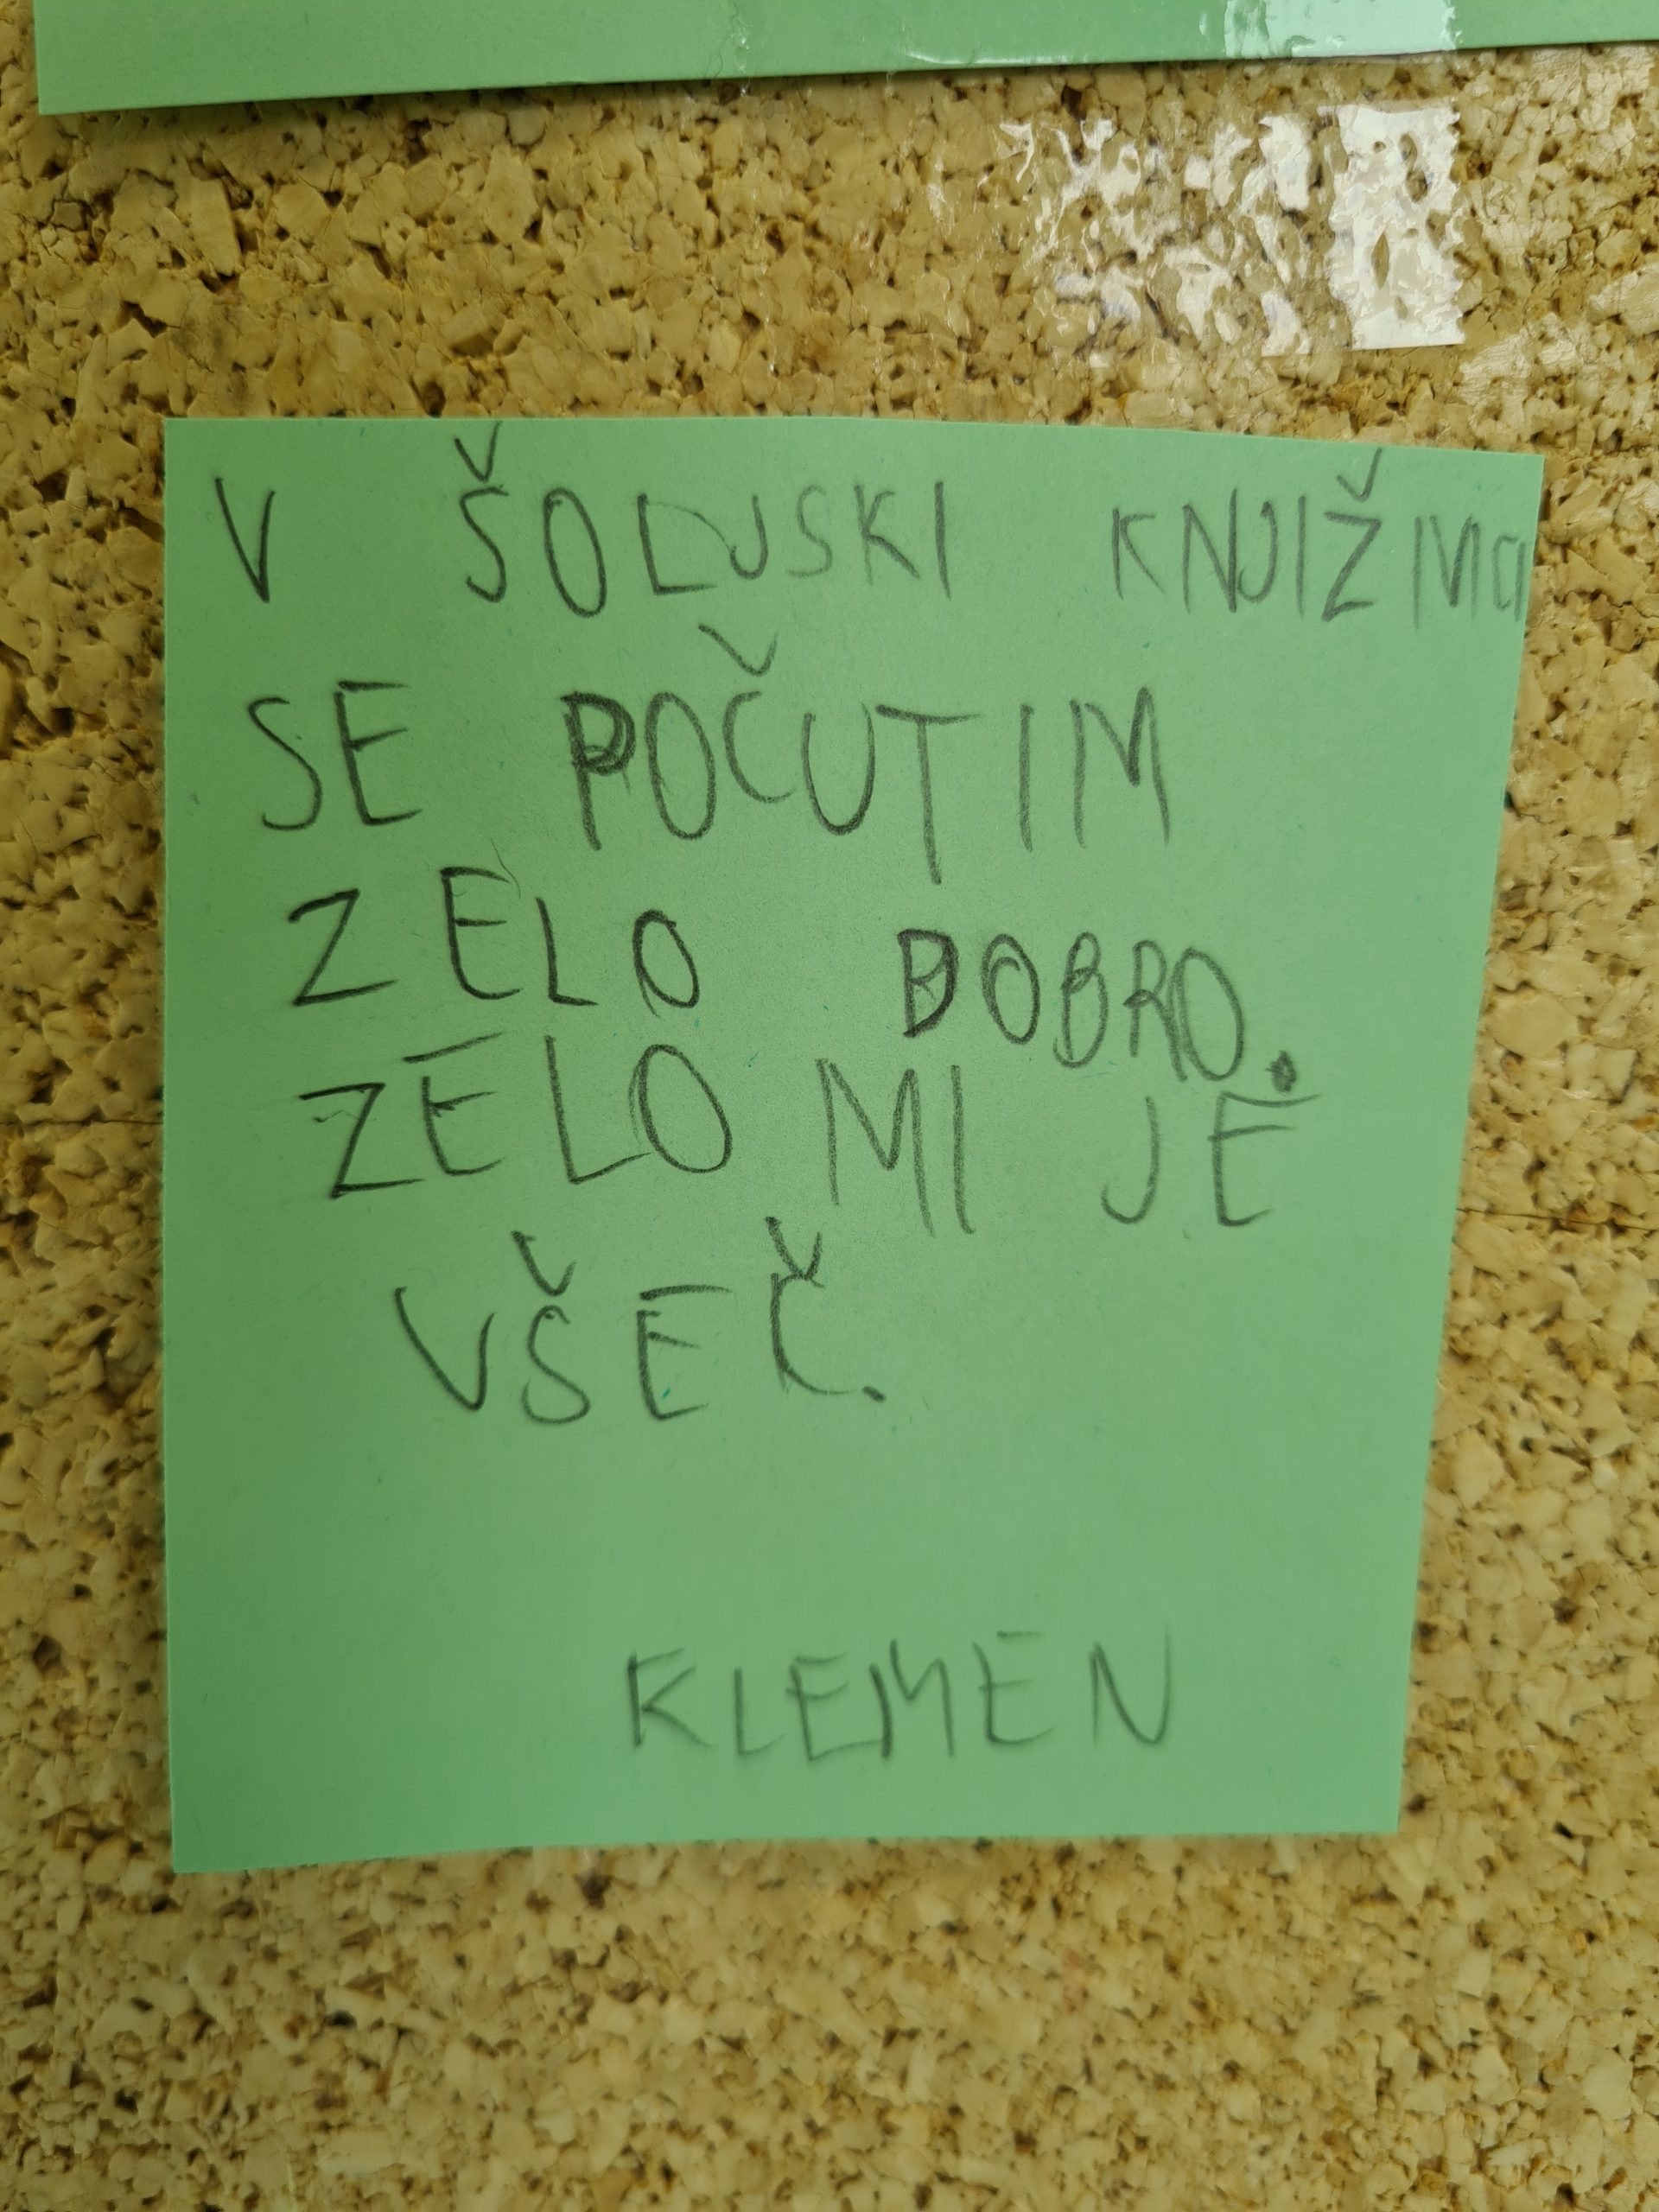 V ŠOLJSKI KNJIŽIMCI
SE POČUTIM
ZELO DOBRO.
ZELO MI JE
VŠEČ.
KLEMEN